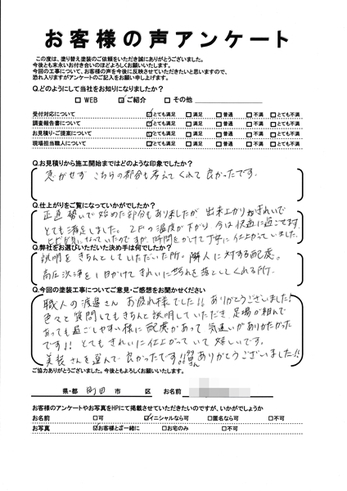 お客様の声アンケート
この度は、塗り替え塗装のご依頼をいただき誠にありがとうございました。
今後とも末永いお付き合いのほどよろしくお願いいたします。
今回の工事について、お客様の声を今後に反映させていただきたいと思いますので、
恐れ入りますがアンケートのご記入をお願い申し上げます。
Q.どのようにして当社をお知りになりましたか?
□WEB ☑ご紹介 □その他
受付対応について ☑とても満足 □満足 □普通 □不満 □とても不満
調査報告書について ☑とても満足 □満足 □普通 □不満 □とても不満
お見積り・ご提案について ☑とても満足 □満足 □普通 □不満 □とても不満
現場担当職人について ☑とても満足 □満足 □普通 □不満 □とても不満
Q.お見積りから施工開始まではどのような印象でしたか?
急かせず こちらの都合も考えてくれて良かったです。
Q.仕上がりをご覧になっていかがでしたか?
正直 勢いで始めた部分もありましたが 出来上がりがきれいで
とても満足しました。2Fの温度が下がり 今は快適に過ごせてます
時間をかけて丁寧に仕上がっていました。
Q.弊社をお選びいただいた決め手は何でしたか?
説明をきちんとしていただいた所。隣人に対する配慮。
高圧洗浄を1日かけてきれいに汚れを落としてくれる所。
Q.今回の塗装工事についてご意見・ご感想をお聞かせください
職人の渡邉さん お疲れ様でした!! ありがとうございました!
色々と質問してもきちんと説明していただき 足場が組んで
あっても過ごしやすい様に配慮があって 気遣いがありがたかった
です!! とてもきれいに仕上がっていて 嬉しいです。
美装さんを選んで良かったです!! 皆さんありがとうございました!!
ご協力ありがとうございました。今後ともよろしくお願いいたします。
県・都 町田 市 区 お名前
お客様のアンケートやお写真をHPにて掲載させていただきたいのですが、いかがでしょうか
お名前 □可 ☑イニシャルなら可 □匿名なら可 □不可
お写真 ☑お客様とご一緒に □お宅のみ □不可